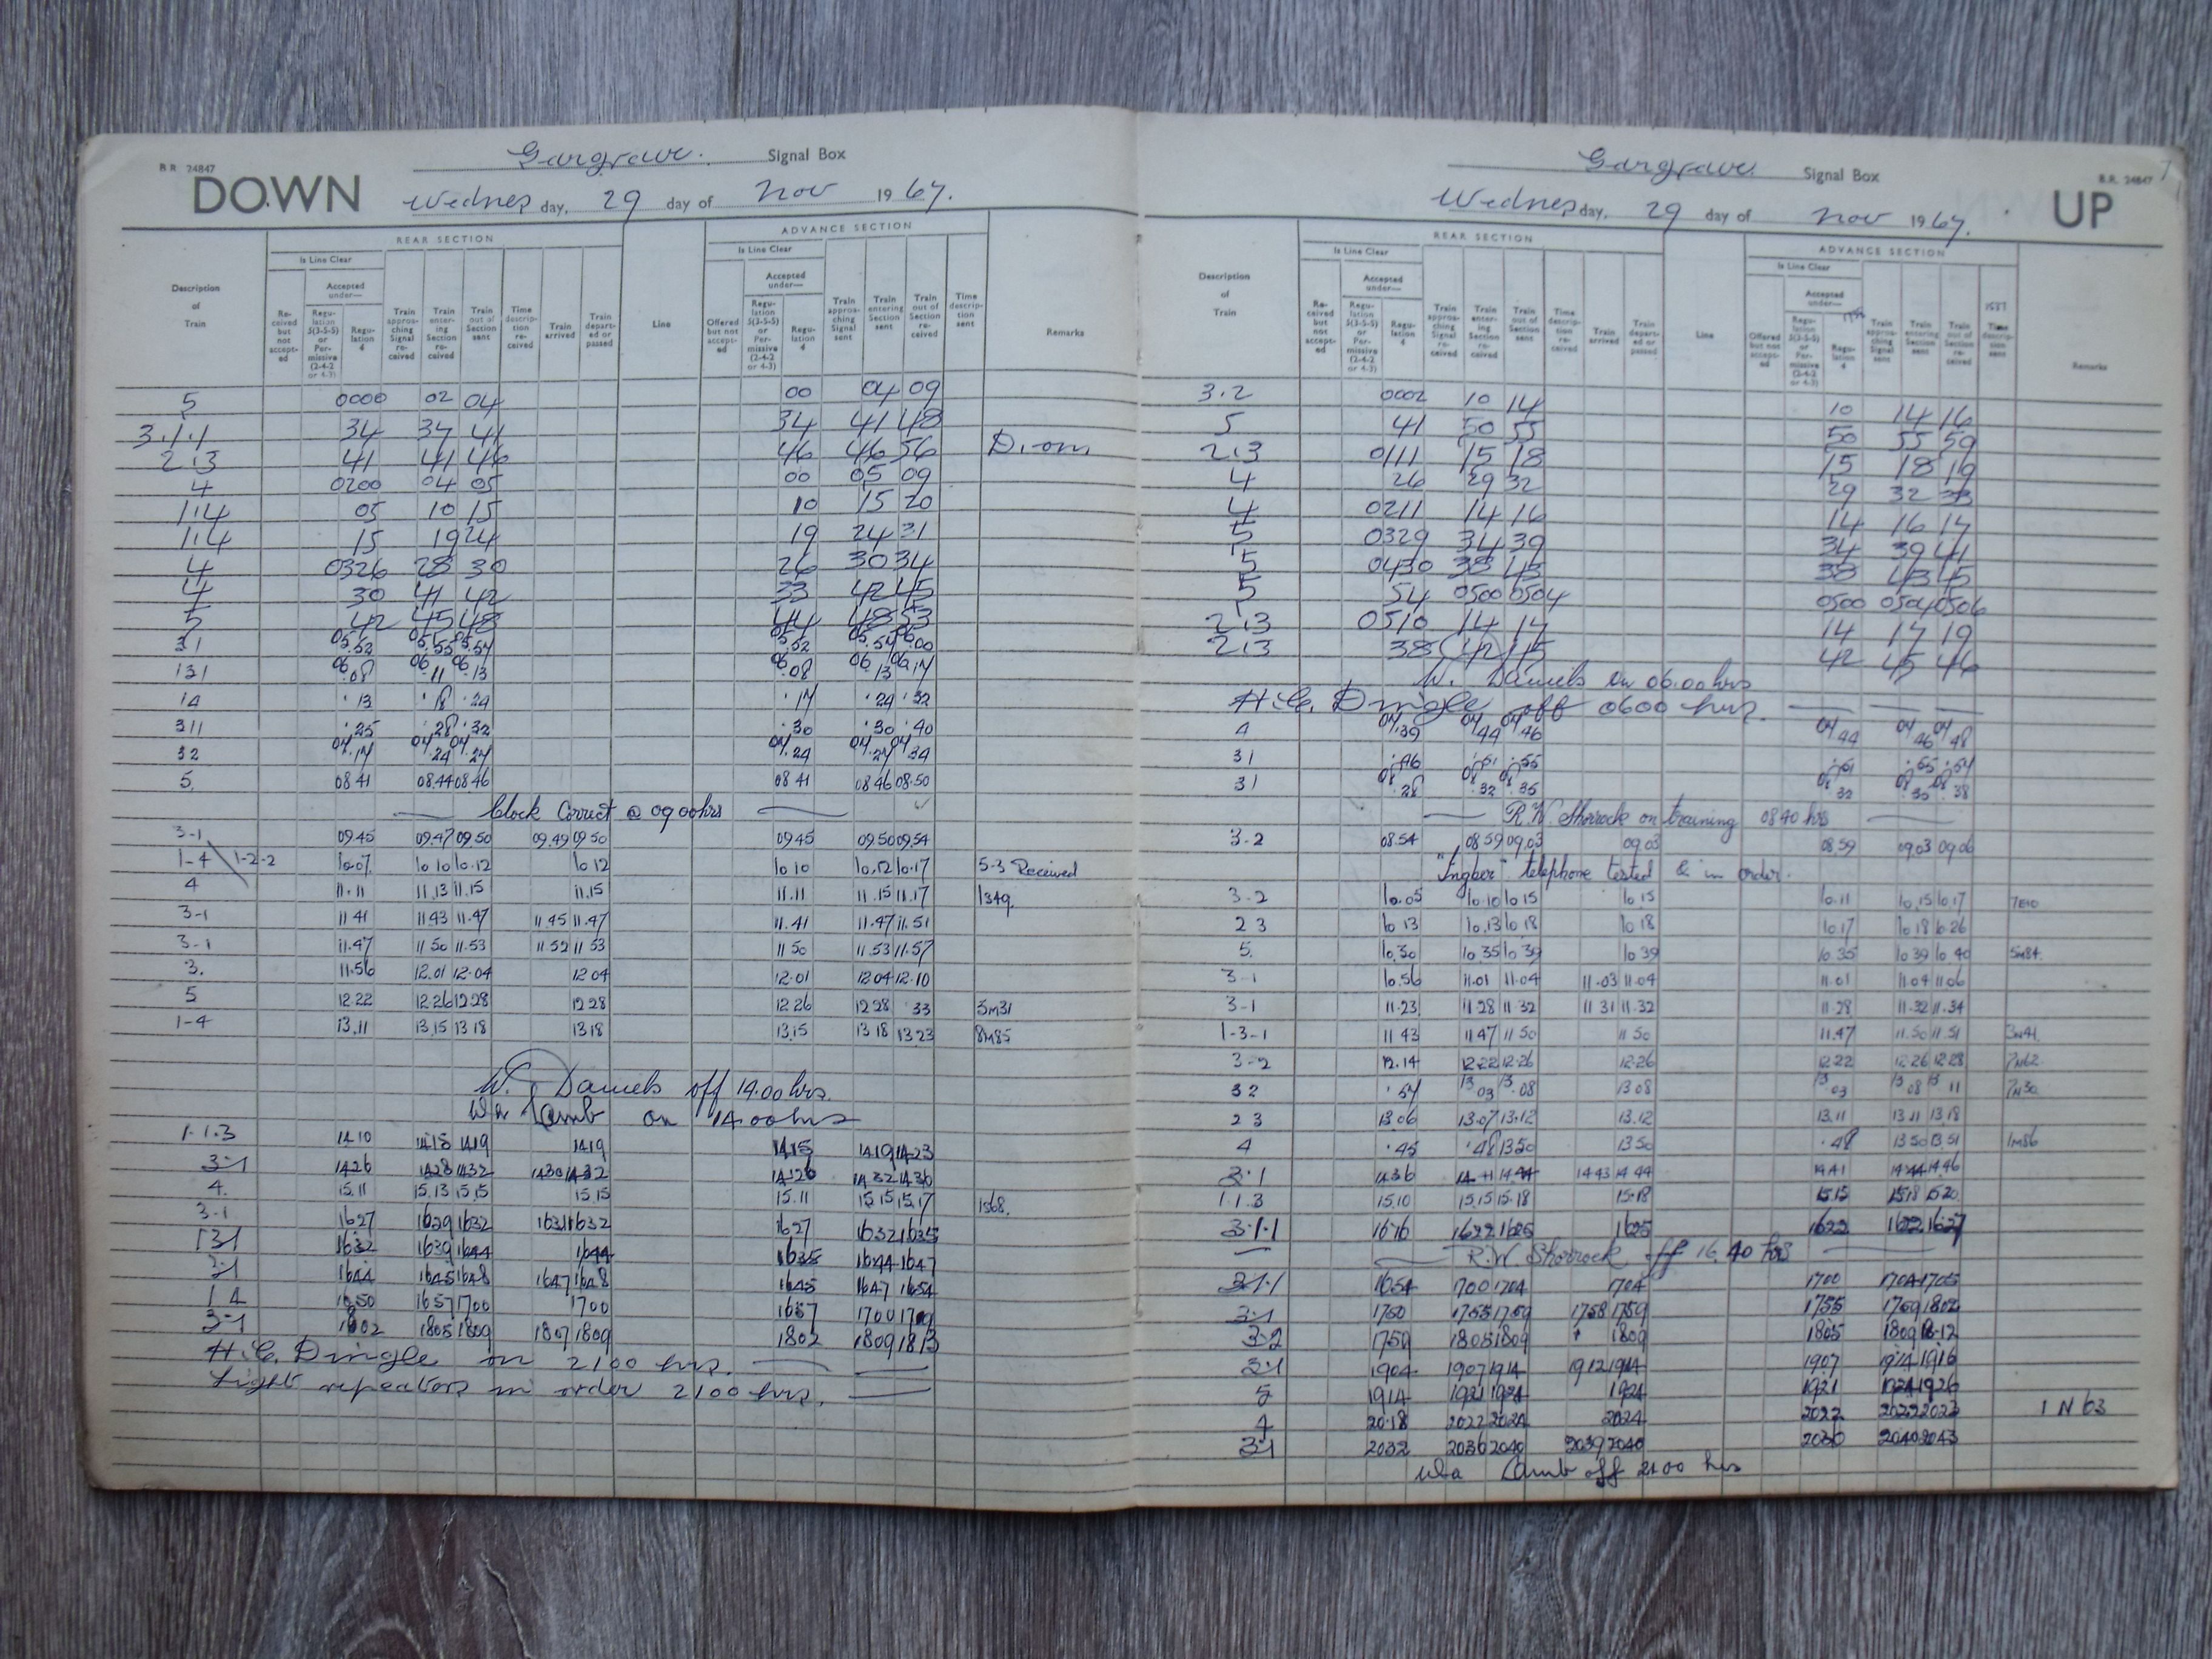 B.R. 24847
Gargrave. Signal Box
DOWN
Wednes day, 29 day of Nov 1967.
REAR SECTION
ADVANCE SECTION
Is Line Clear
Is Line Clear
Description of Train
Received but not accepted
Accepted under—
Regulation 5(3-5-5) or Permissive (2-4-2 or 4-3)
Regulation 4
Train approaching Signal received
Train entering Section received
Train out of Section sent
Time description received
Train arrived
Train departed or passed
Line
Offered but not accepted
Accepted under—
Regulation 5(3-5-5) or Permissive (2-4-2 or 4-3)
Regulation 4
Train approaching Signal sent
Train entering Section sent
Train out of Section received
Time description sent
Remarks
5 0000 02 04 00 04 09
3.1.1 34 37 41 34 41 48
2.3 41 41 46 46 46 56
4 0200 04 05 00 05 09
1.4 05 10 15 10 15 20
1.4 15 19 24 19 24 31
4 0326 28 30 26 30 34
4 30 41 42 33 42 45
5 42 45 48 44 48 53
31 05.52 05.55 05.57 05.52 05.57 06.00
131 06.08 06.11 06.13 06.08 06.13 06.17
14 .13 .18 .24 .17 .24 .32
311 .25 .28 .32 .30 .30 .40
32 07.17 07.24 07.27 07.24 07.27 07.34
5. 08 41 08.44 08 46 08 41 08 46 08.50
Clock Correct @ 09 00 hrs
3-1 09.45 09.47 09.50 09.49 09 50 09.45 09.50 09.54
1-4 1-2-2 10.07 10 10 10.12 10 12 10 10 10.12 10.17 5-3 Received
4 11.11 11.13 11.15 11.15 11.11 11.15 11.17 1S49.
3-1 11 41 11 43 11.47 11 45 11.47 11.41 11.47 11.51
3-1 11.47 11 50 11.53 11 52 11 53 11 50 11.53 11.57
3. 11.56 12.01 12.04 12 04 12.01 12 04 12.10
5 12.22 12.26 12 28 12 28 12.26 12 28 .33 5M31
1-4 13.11 13.15 13 18 13 18 13.15 13 18 13.23 8M85
W. Daniels off 14.00 hrs.
Wa Lamb on 14.00 hrs
1.1.3 14 10 14 15 14 19 14 19 14 15 14 19 14 23
3-1 1426 1428 1432 1430 1432 1426 1432 1436
4. 15.11 15.13 15.15 15 15 15.11 15 15 15.17 1S68.
3-1 1627 1629 1632 1631 1632 1627 1632 1635
131 1632 1639 1644 1644 1635 1644 1647
3-1 1644 1645 1648 1647 1648 1645 1647 1654
1 4 1650 1657 1700 1700 1657 1700
3-1 1802 1805 1809 1807 1809 1802 1809 1813
H.C. Dingle on 2100 hrs.
Light repeators in order 2100 hrs.
7
B.R. 24847
Gargrave. Signal Box
UP
Wednes day, 29 day of Nov 1967.
REAR SECTION
ADVANCE SECTION
Is Line Clear
Is Line Clear
Description of Train
Received but not accepted
Accepted under—
Regulation 5(3-5-5) or Permissive (2-4-2 or 4-3)
Regulation 4
Train approaching Signal received
Train entering Section received
Train out of Section sent
Time description received
Train arrived
Train departed or passed
Line
Offered but not accepted
Accepted under—
Regulation 5(3-5-5) or Permissive (2-4-2 or 4-3)
Regulation 4
Train approaching Signal sent
Train entering Section sent
Train out of Section received
Time description sent
Remarks
3.2 0002 10 14 10 14 16
5 41 50 55 50 55 59
2.3 0111 15 18 15 18 19
4 26 29 32 29 32 33
4 0211 14 16 14 16 17
5 0329 34 39 34 39 41
5 0430 38 43 38 43 45
5 54 0500 0504 0500 0504 0506
2.3 0510 14 17 14 17 19
2.3 38 42 45 42 45 46
W. Daniels on 06.00 hrs
H.C. Dingle off 0600 hrs.
4 07.39 07 44 07 46 07 44 07 46 07 48
31 .46 .51 .55 .51 .55 .57
31 08.28 08.32 08.35 08 32 08.35 08.38
R.W. Shorrock on training 08 40 hrs
3-2 08.54 08 59 09.03 09.03 08.59 09.03 09 06
"Ingber" telephone tested & in order.
3-2 10.05 10.10 10 15 10 15 10.11 10.15 10.17 7E10
2 3 10 13 10.13 10 18 10 18 10.17 10 18 10.26
5. 10.30 10 35 10 39 10 39 10 35 10 39 10 40 5M84.
3-1 10.56 11.01 11.04 11.03 11.04 11.01 11.04 11 06
3-1 11.23 11 28 11 32 11 31 11.32 11.28 11.32 11.34
1-3-1 11 43 11 47 11 50 11 50 11.47 11.50 11 51 3N41.
3-2 12.14 12 22 12.26 12.26 12.22 12.26 12 28 7N62
3 2 .57 13 03 13.08 13 08 13 03 13 08 13 11 7N30
2 3 13 06 13.07 13.12 13.12 13.11 13.11 13 18
4 .45 .48 13 50 13 50 .48 13 50 13 51 1M86
3-1 1436 14 41 14 44 14 43 14 44 14 41 14 44 14 46
1.1.3 15.10 15.15 15.18 15.18 15 15 15 18 15 20
3-1-1 1616 1622 1625 1625 1622 1627
R.W. Shorrock off 16.40 hrs
3-1-1 1654 1700 1704 1704 1700 1704 1705
3-1 1750 1755 1759 1758 1759 1755 1759 1802
3-2 1759 1805 1809 1809 1805 1809 18 12
3-1 1904 1907 1914 1912 1914 1907 1914 1916
5 1914 1921 1924 1924 1921 1924 1926
4 2018 2022 2024 2024 2022 2023 1N63
3-1 2032 2036 2040 2039 2040 2036 2040 2043
Wa Lamb off 2100 hrs